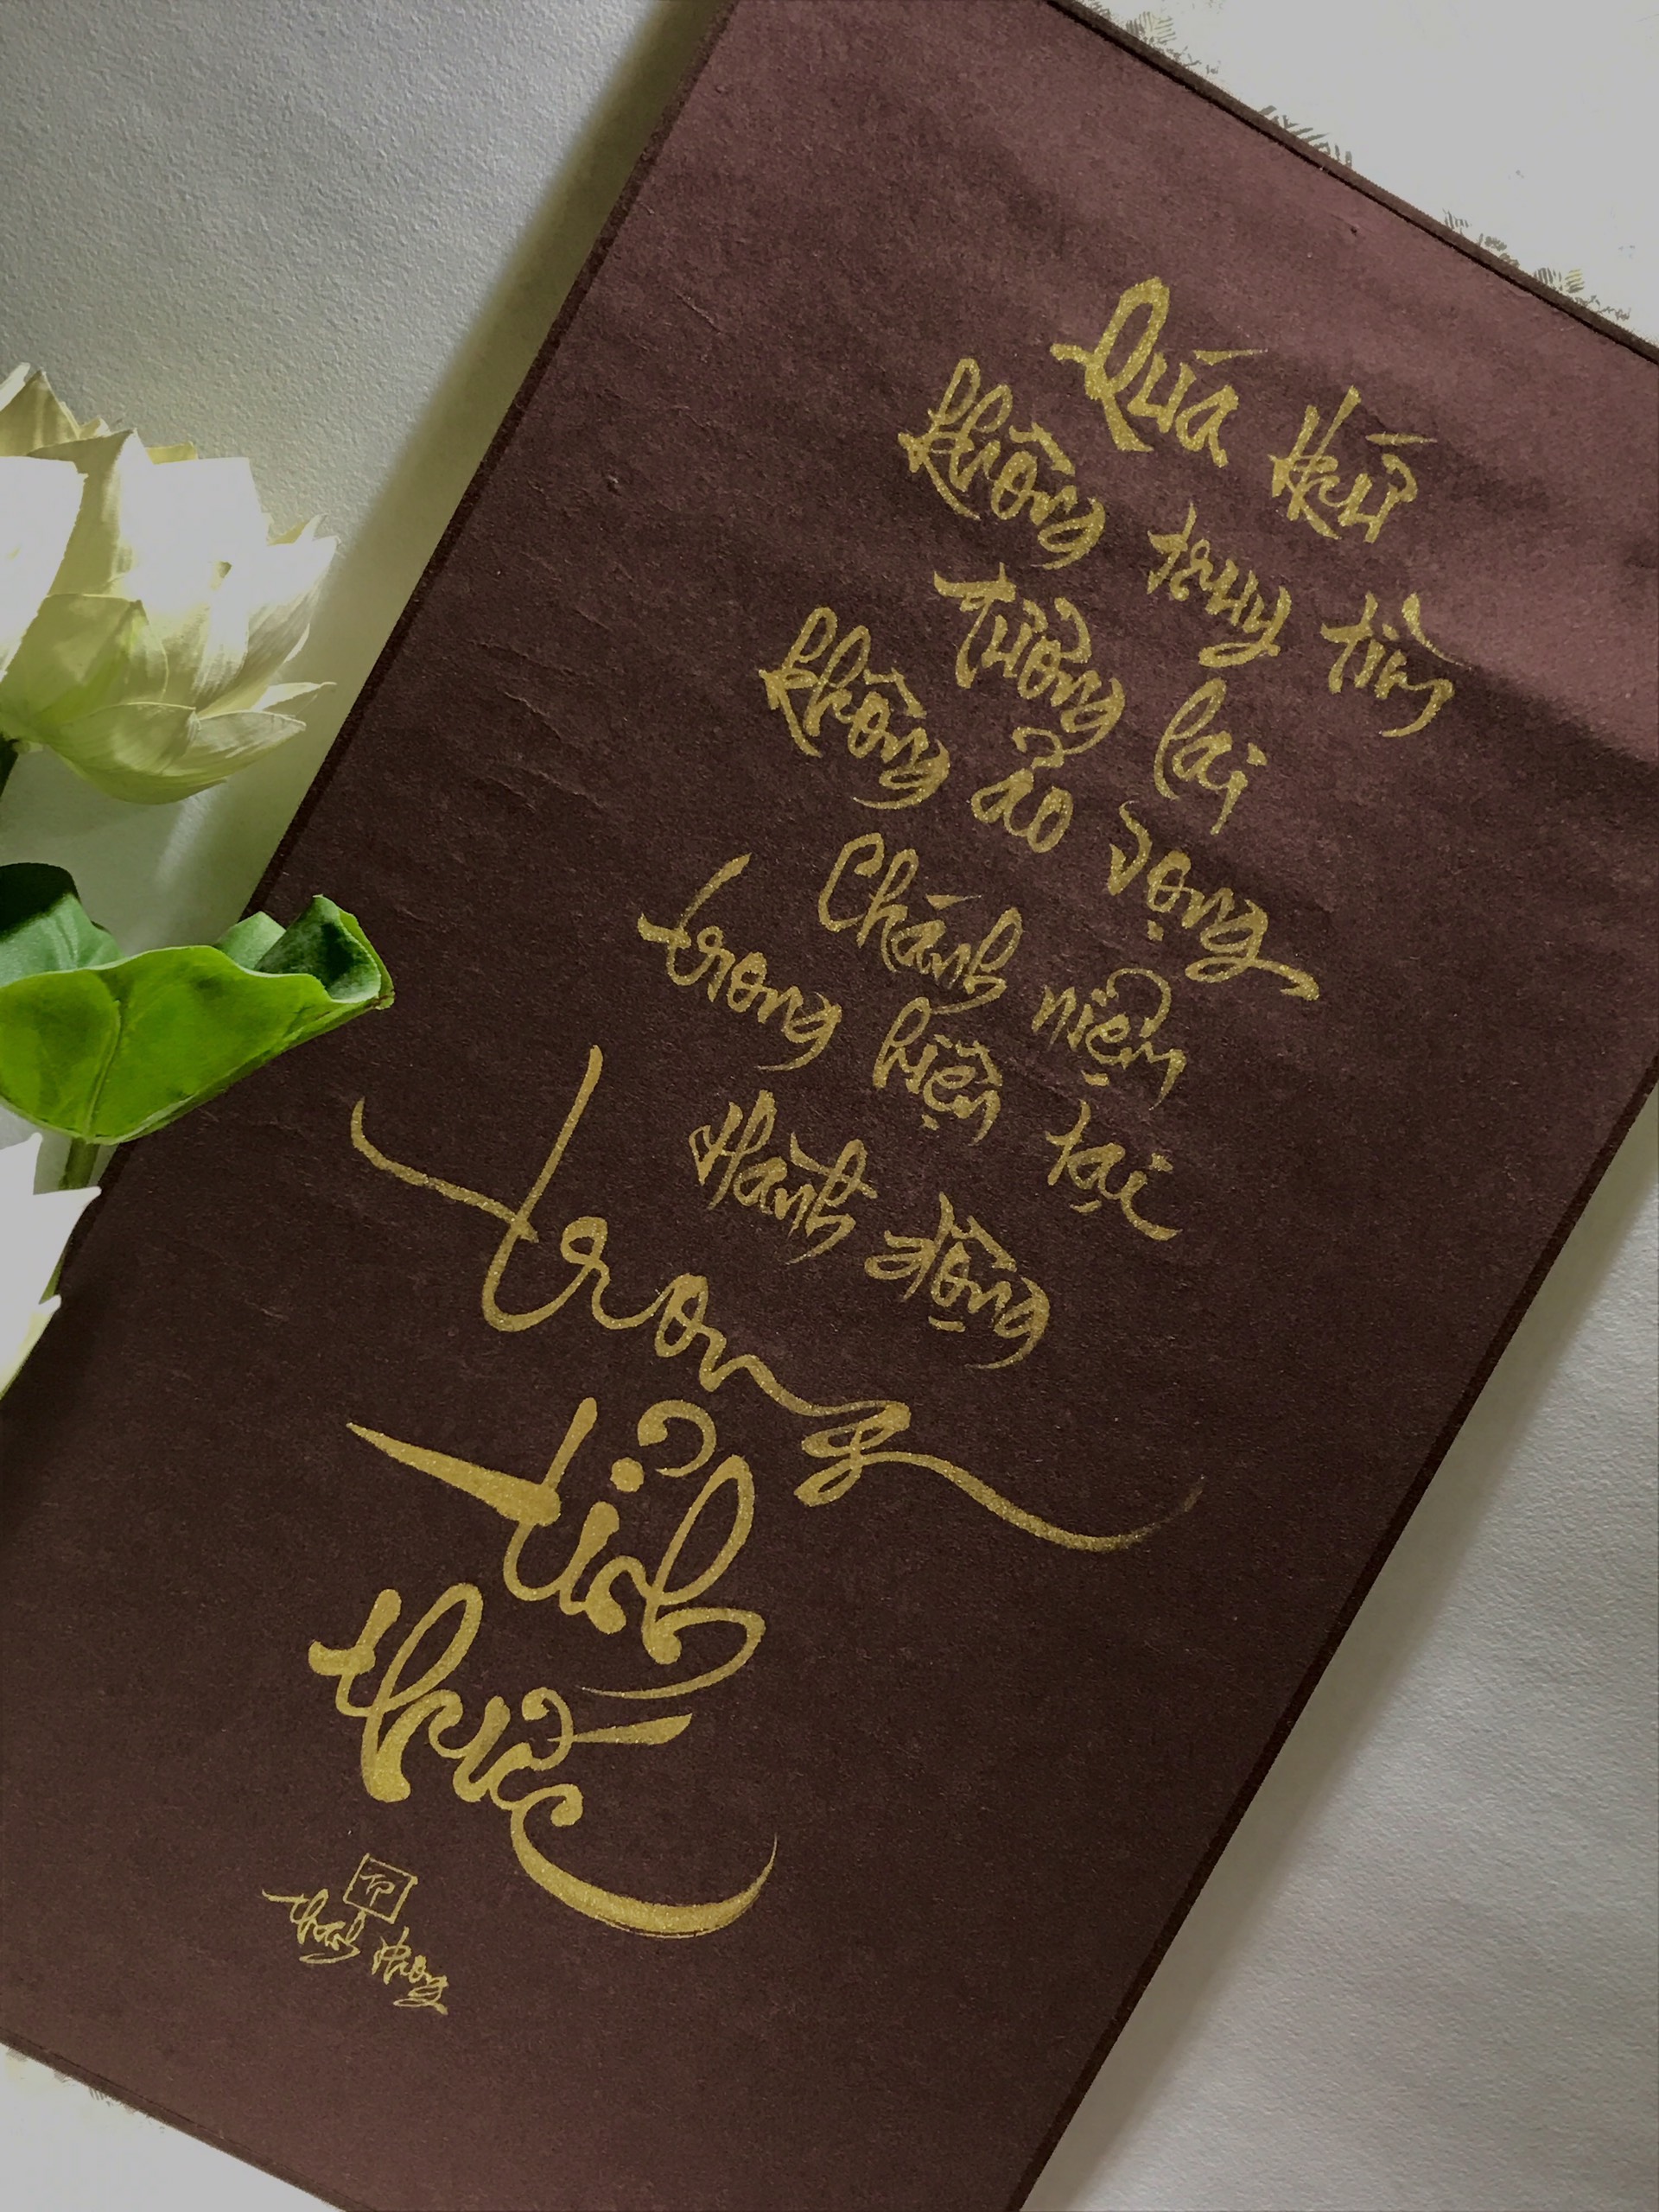 Quá khứ
không truy tìm
tương lai
không ảo vọng
Chánh niệm
trong hiện tại
Hành động
trong
tỉnh
thức
TP
Thanh Phong